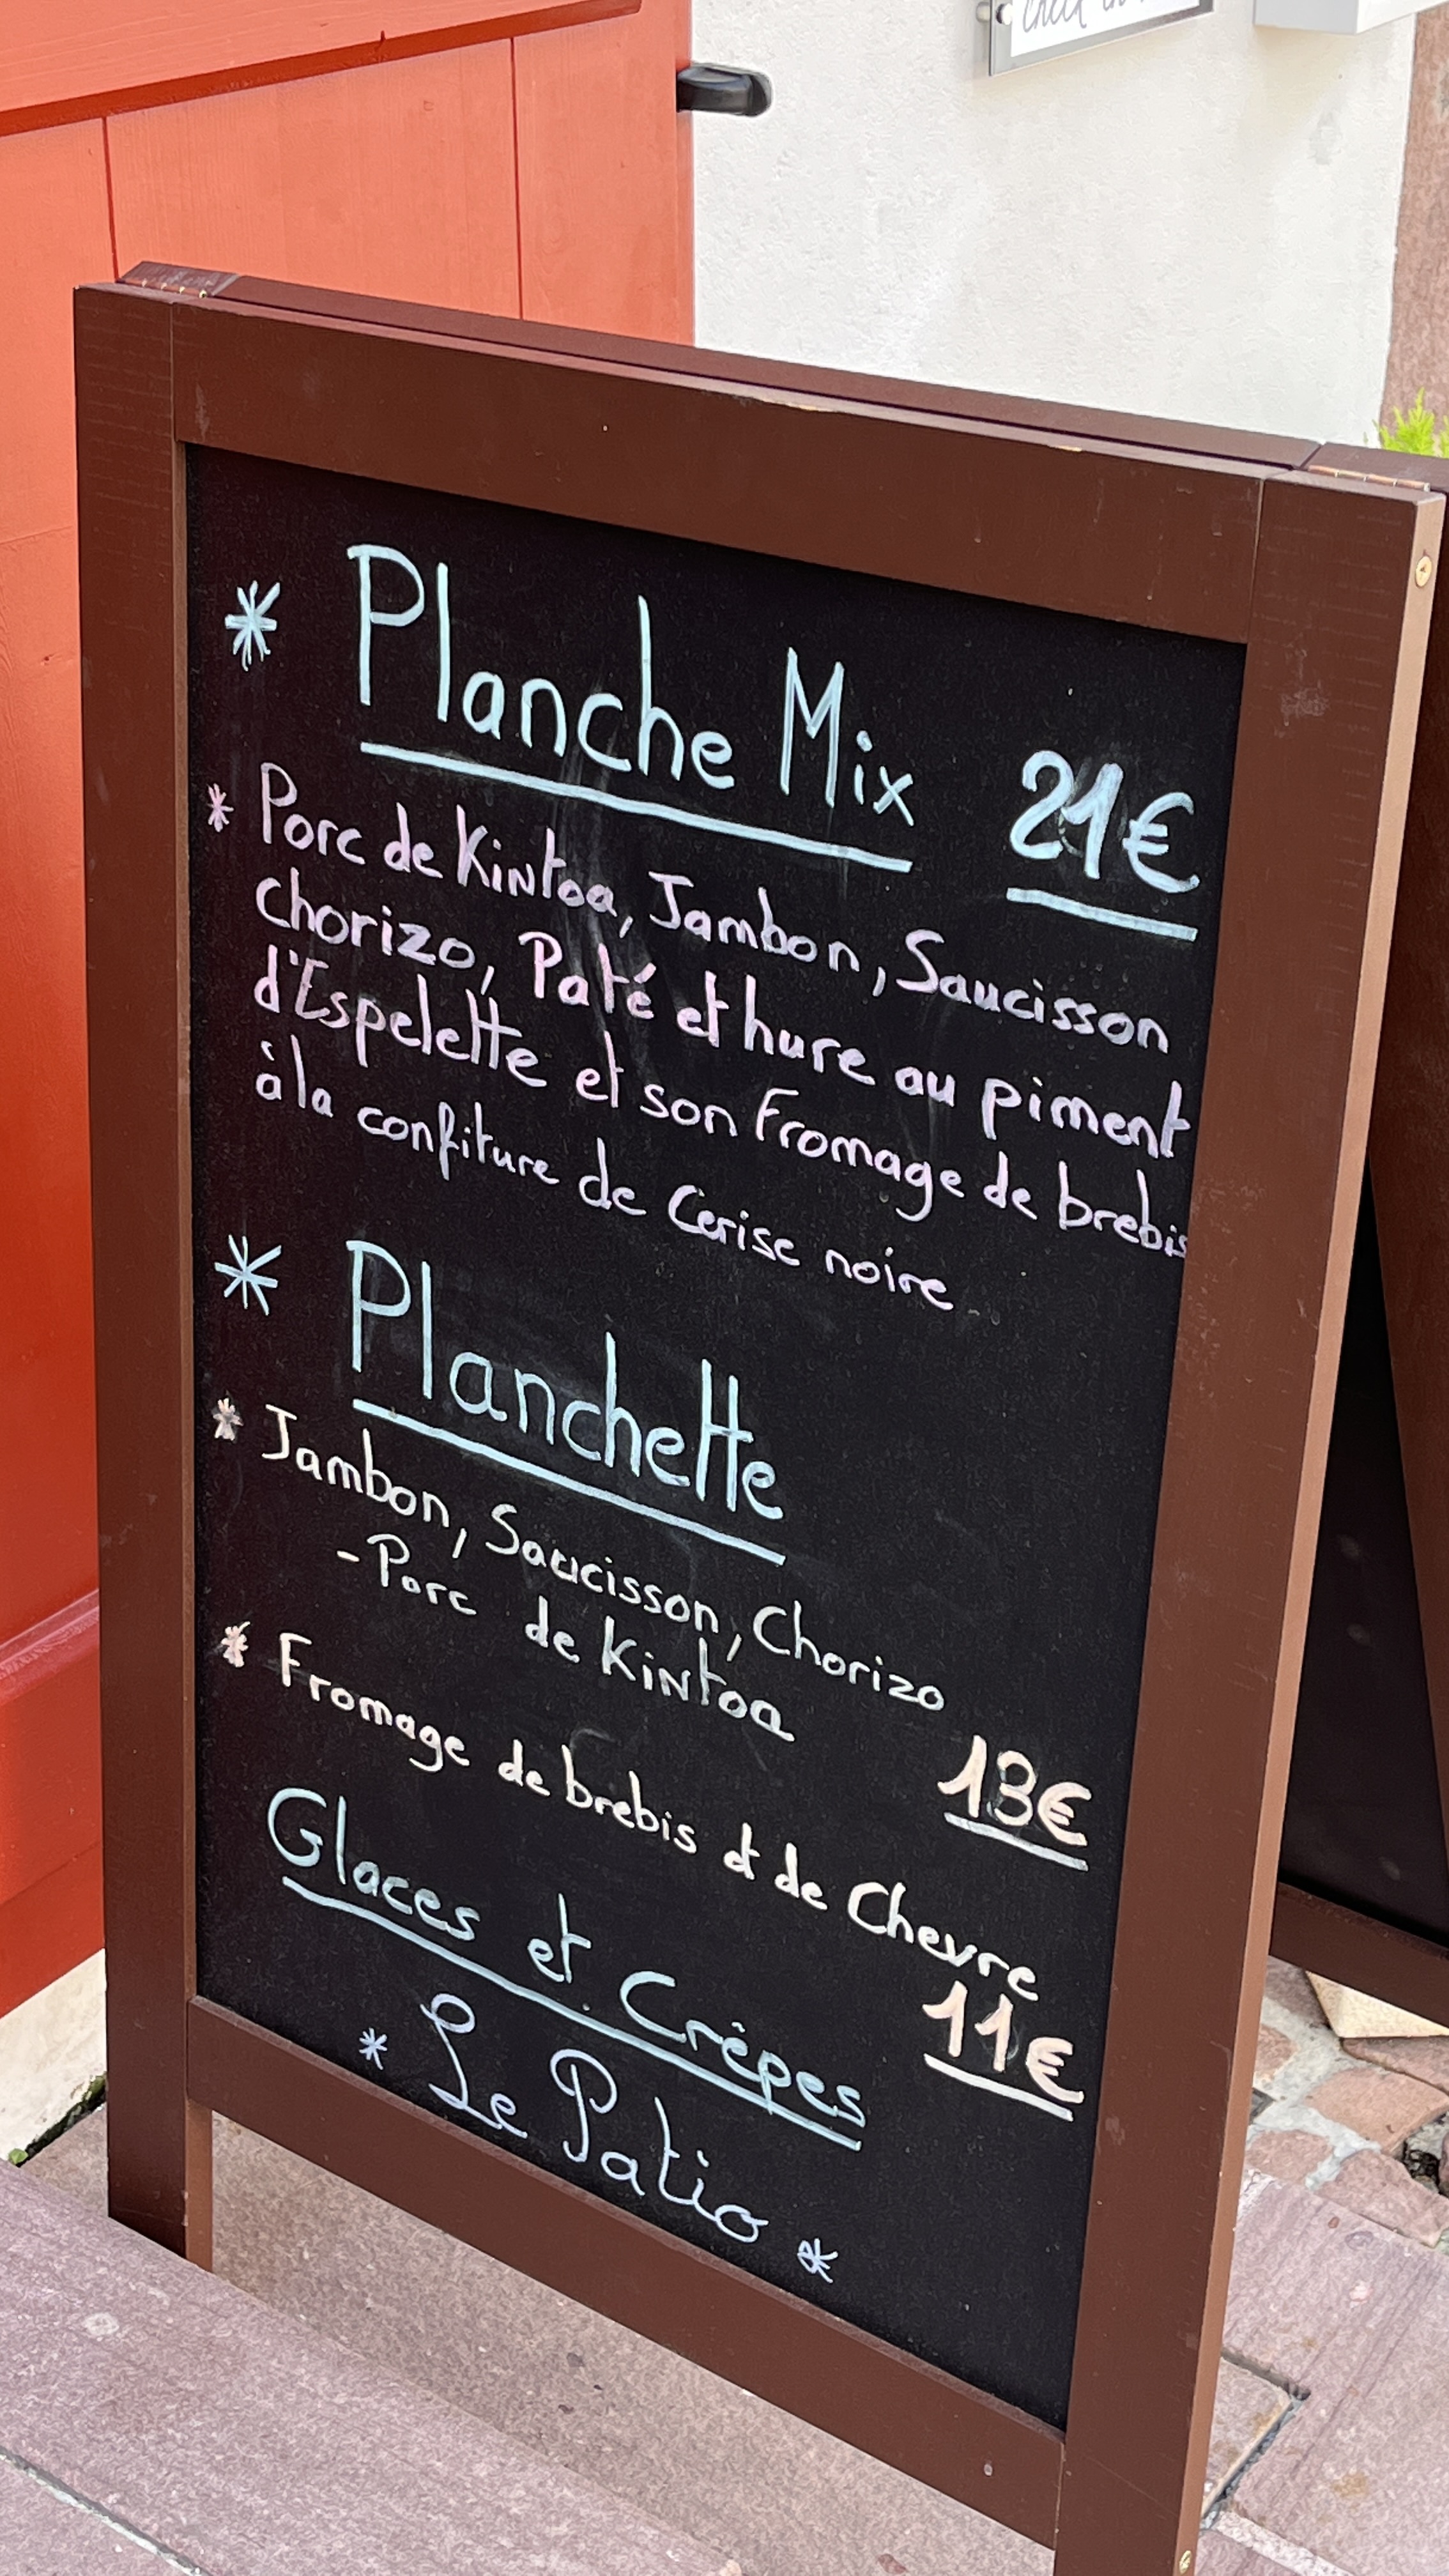 Check in
* Planche Mix 21€
* Porc de Kintoa, Jambon, Saucisson
chorizo, Paté et hure au piment
d'Espelette et son Fromage de brebis
à la confiture de Cerise noire
* Planchette
* Jambon, Saucisson, Chorizo
- Porc de Kintoa 13€
* Fromage de brebis et de Chevre
11€
Glaces et Crêpes
* Le Patio *